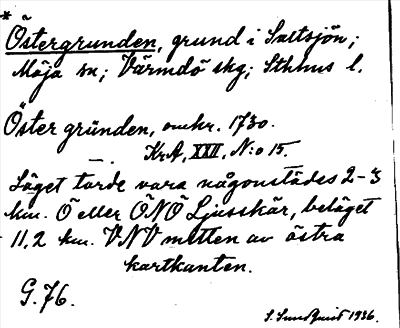 * Östergrunden, grund i Saltsjön;
Möja sn; Värmdö skg; Sthlms l.
Öster gründen, omkr. 1730.
KrA, XXII, N:o 15.
Läget torde vara någonstädes 2-3
km. Ö eller ÖNÖ Ljusskär, beläget
11,2 km. VNV mitten av östra
kartkanten.
G. 76.
S. Sundquist 1936.